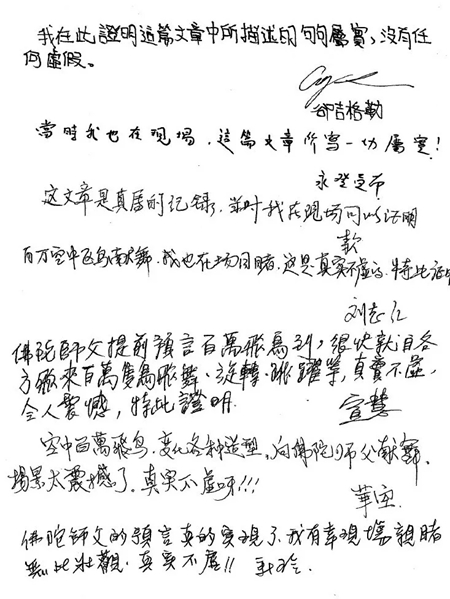 我在此證明這篇文章中所描述的句句屬實，沒有任
何虛假。
卻吉格勒
當時我也在現場，這篇文章所寫一切屬實！
永登曼布
这文章是真實的记録，当时我在現場可以证明
款
百万空中飞鸟献舞，我也在场目睹，这是真实不虚的，特此证明
刘志仁
佛陀師父提前預言百萬飛鳥到，很快就自各
方飛來百萬隻鳥飛舞、旋轉、跳躍等，真實不虛，
令人震憾，特此證明
宣慧
空中百萬飛鸟，变化各种造型，向佛陀师父献舞，
場景太震撼了，真实不虛呀!!!
華
佛陀師父的預言真的实現了，我有幸現場親睹
無比壯觀，真实不虛!!